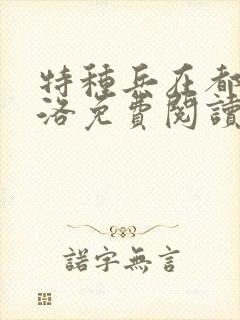 特種兵在都
洛免費閱讀
諾字無言